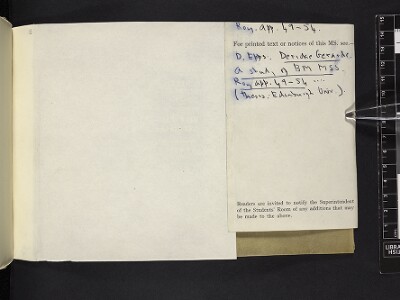 Roy. App. 49-54.
For printed text or notices of this MS. see:—
D. Epps. Dericke Gerarde.
a study of BM MSS.
Roy App. 49-54 ....
(thesis. Edinburgh Univ.).
Readers are invited to notify the Superintendent
of the Students' Room of any additions that may
be made to the above.